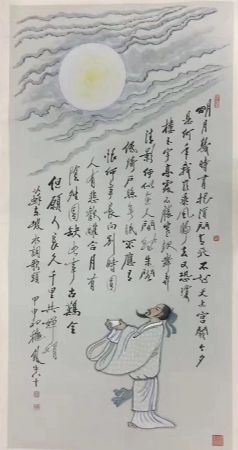 明月幾時有把酒問青天不知天上宮闕今夕
是何年我欲乘風歸去又恐瓊
樓玉宇高處不勝寒起舞弄
清影何似在人間轉朱閣
低綺戶照無眠不應有
恨何事長向別時圓
人有悲歡離合月有
陰晴圓缺此事古難全
但願人長久千里共嬋娟
蘇東坡水調歌頭 甲申初